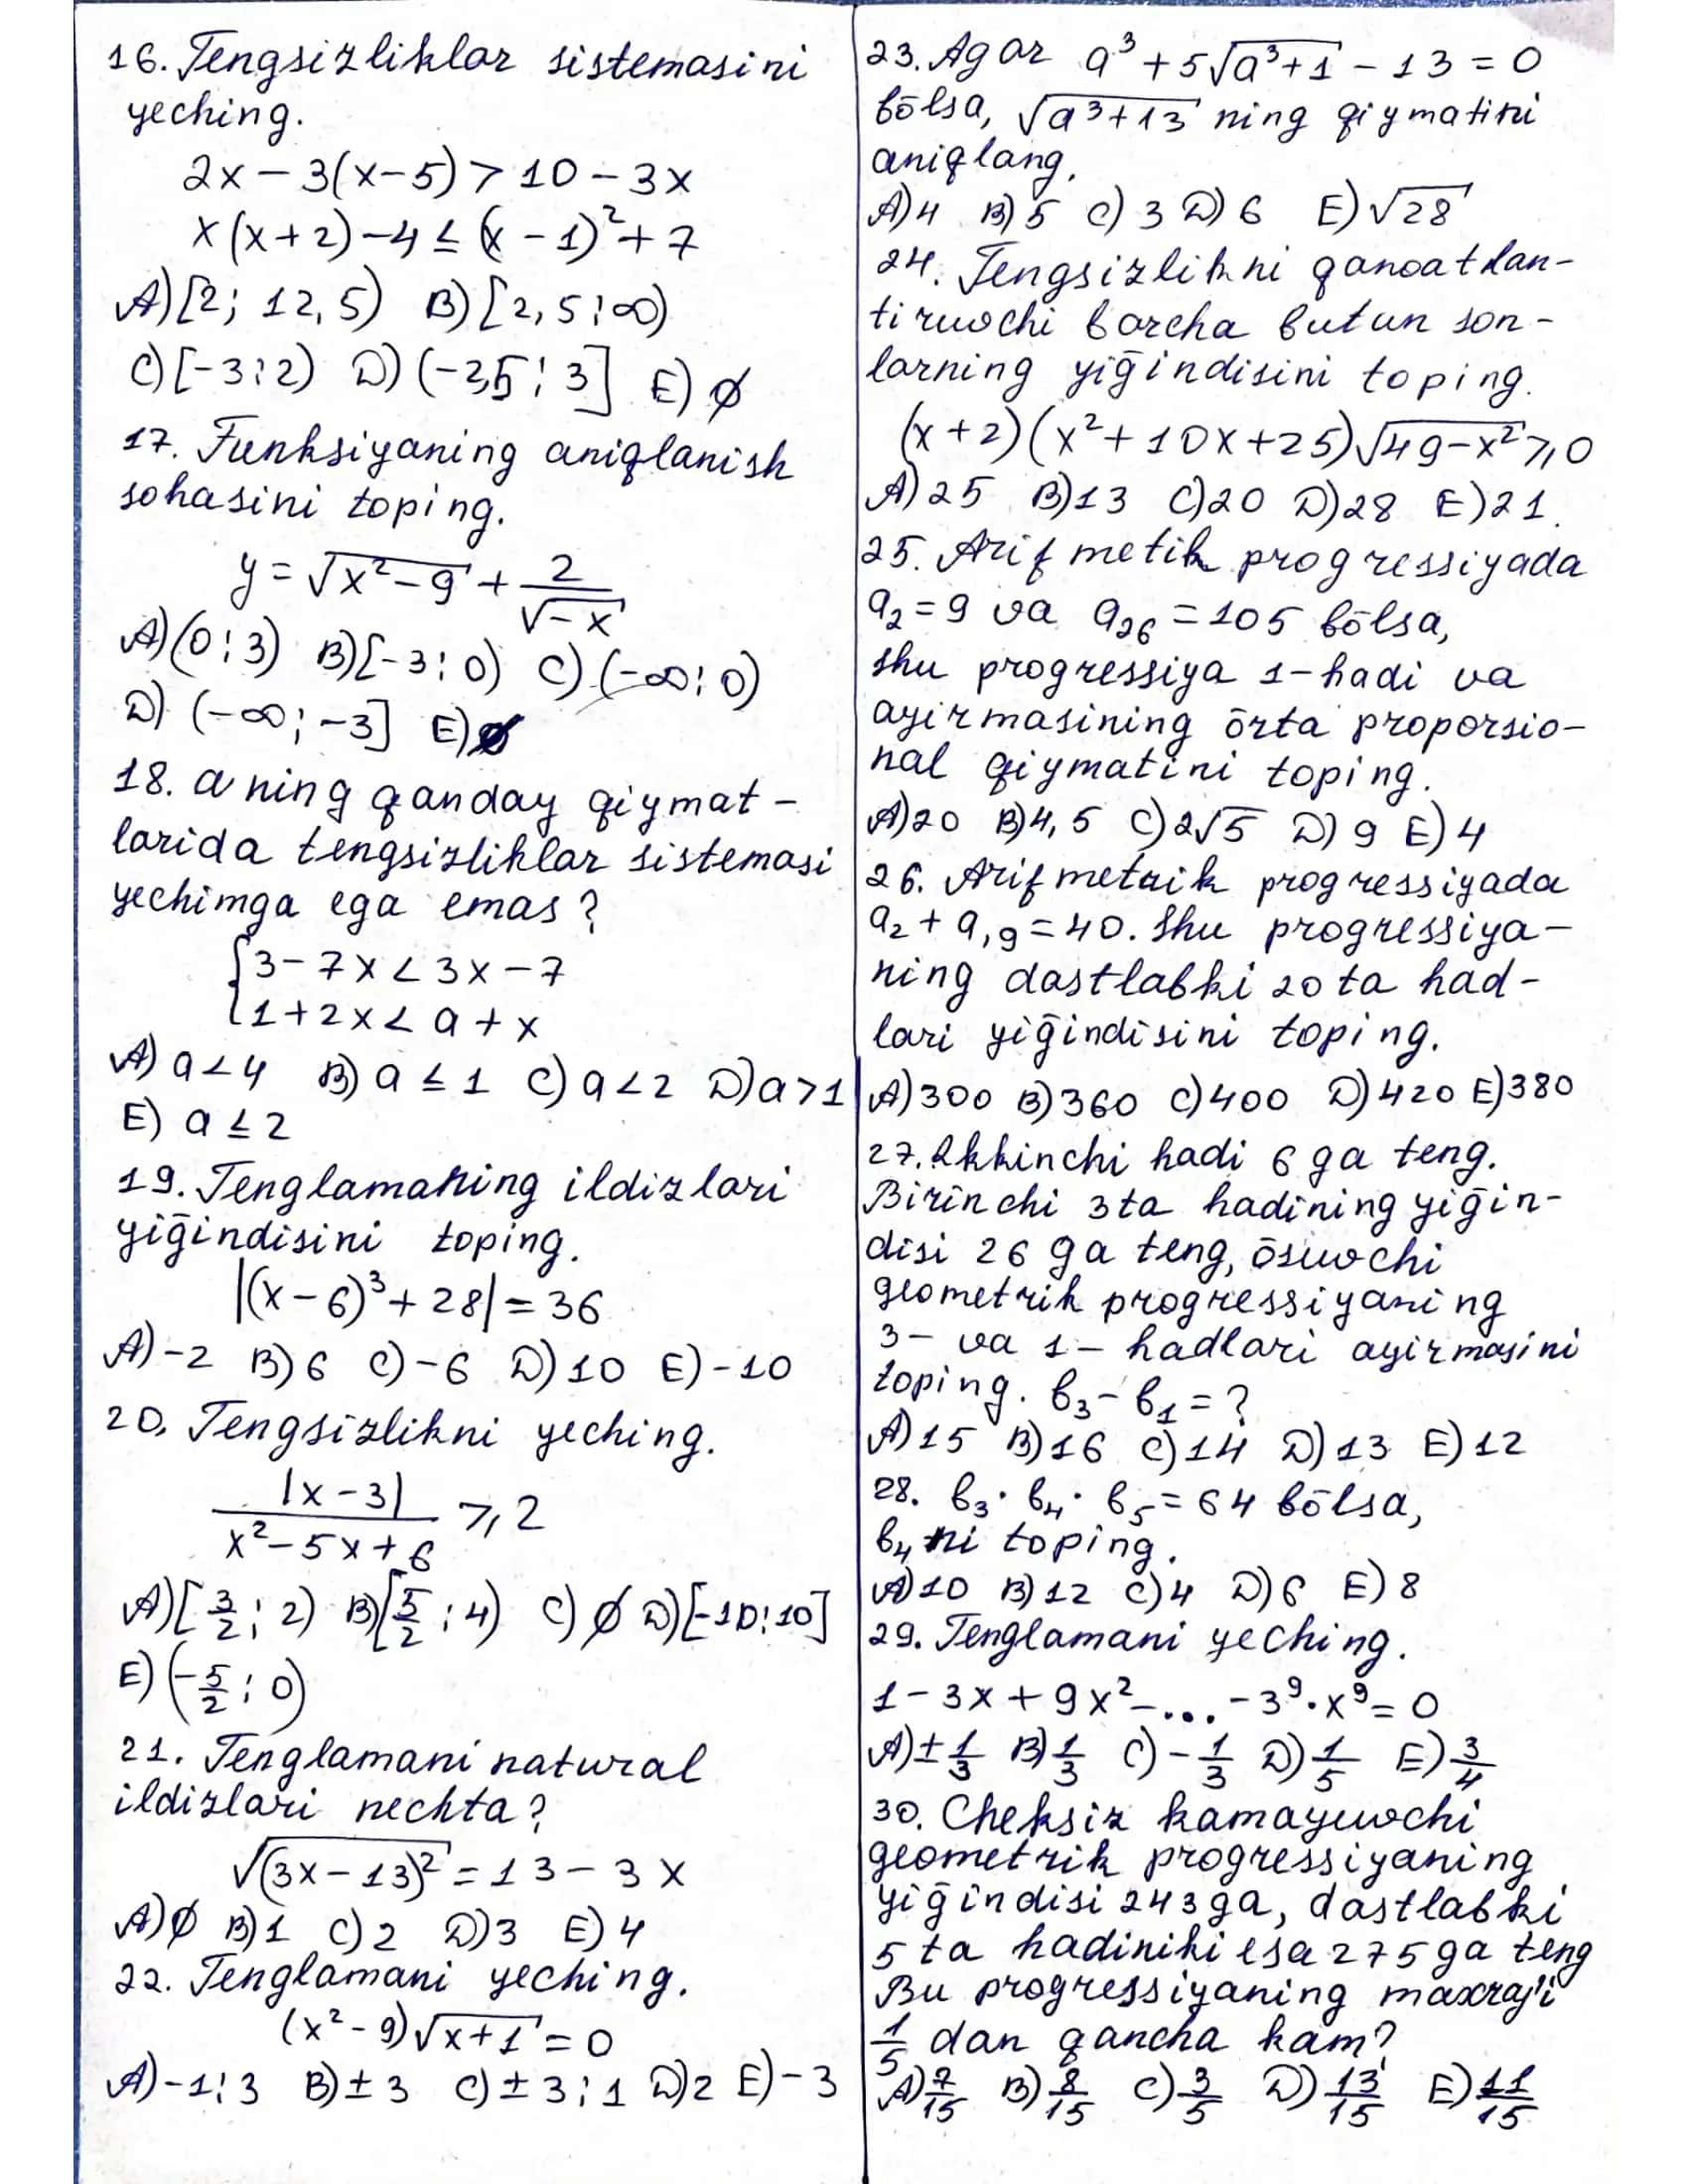 16. Tengsizliklar sistemasini
yeching.
2x - 3(x-5) > 10 - 3x
x(x+2) - 4 ≤ (x - 1)² + 7
A) [2; 12,5) B) [2,5; ∞)
C) [-3; 2) D) (-2,5; 3] E) ∅
17. Funksiyaning aniqlanish
sohasini toping.
y = √(x² - 9) + 2/√(-x)
A) (0; 3) B) [-3; 0) C) (-∞; 0)
D) (-∞; -3] E) ∅
18. a ning qanday qiymat-
larida tengsizliklar sistemasi
yechimga ega emas?
{3 - 7x < 3x - 7
{1 + 2x < a + x
A) a < 4 B) a ≤ 1 C) a < 2 D) a > 1
E) a ≤ 2
19. Tenglamaning ildizlari
yiḡindisini toping.
|(x - 6)³ + 28| = 36
A) -2 B) 6 C) -6 D) 10 E) -10
20. Tengsizlikni yeching.
|x - 3|/(x² - 5x + 6) ≥ 2
A) [3/2; 2) B) [5/2; 4) C) ∅ D) [-10; 10]
E) (-5/2; 0)
21. Tenglamani natural
ildizlari nechta?
√(3x - 13)² = 13 - 3x
A) ∅ B) 1 C) 2 D) 3 E) 4
22. Tenglamani yeching.
(x² - 9)√(x+1) = 0
A) -1; 3 B) ±3 C) ±3; 1 D) 2 E) -3
23. Agar a³ + 5√(a³+1) - 13 = 0
bōlsa, √(a³+13) ning qiymatini
aniqlang.
A) 4 B) 5 C) 3 D) 6 E) √28
24. Tengsizlikni qanoatlan-
tiruvchi barcha butun son-
larning yiḡindisini toping.
(x + 2)(x² + 10x + 25)√(49 - x²) ≥ 0
A) 25 B) 13 C) 20 D) 28 E) 21.
25. Arifmetik progressiyada
a₂ = 9 va a₂₆ = 105 bōlsa,
shu progressiya 1-hadi va
ayirmasining ōrta proporsio-
nal qiymatini toping.
A) 20 B) 4,5 C) 2√5 D) 9 E) 4
26. Arifmetrik progressiyada
a₂ + a₁₉ = 40. Shu progressiya-
ning dastlabki 20 ta had-
lari yiḡindisini toping.
A) 300 B) 360 C) 400 D) 420 E) 380
27. Ikkinchi hadi 6 ga teng.
Birinchi 3 ta hadining yiḡin-
disi 26 ga teng, ōsuvchi
geometrik progressiyaning
3- va 1- hadlari ayirmasini
toping. b₃ - b₁ = ?
A) 15 B) 16 C) 14 D) 13 E) 12
28. b₃ · b₄ · b₅ = 64 bōlsa,
b₄ ni toping.
A) 10 B) 12 C) 4 D) 6 E) 8
29. Tenglamani yeching.
1 - 3x + 9x² - ... - 3⁹ · x⁹ = 0
A) ±1/3 B) 1/3 C) -1/3 D) 1/5 E) 3/4
30. Cheksiz kamayuvchi
geometrik progressiyaning
yiḡindisi 243 ga, dastlabki
5 ta hadiniki esa 275 ga teng
Bu progressiyaning maxraji
1/5 dan qancha kam?
A) 7/15 B) 8/15 C) 3/5 D) 13/15 E) 11/15